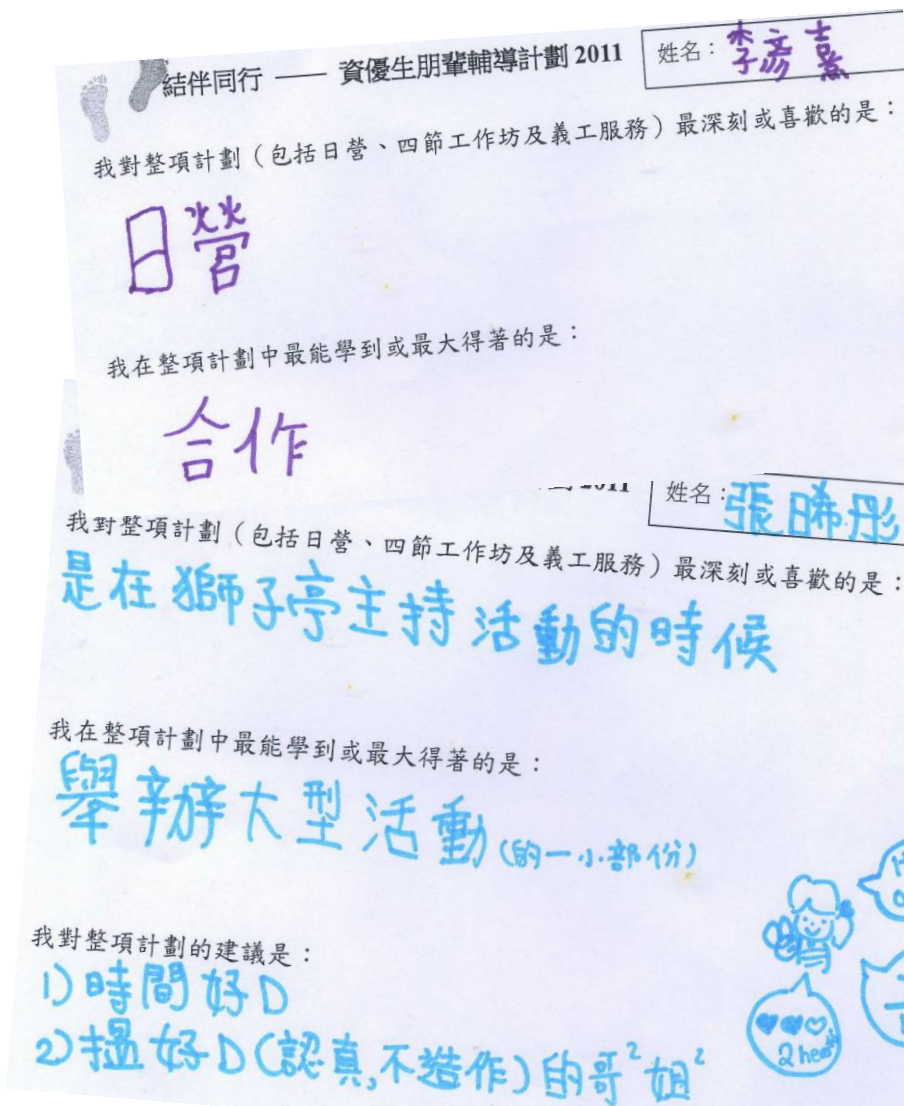 結伴同行 —— 資優生朋輩輔導計劃 2011
姓名：李彥熹
我對整項計劃（包括日營、四節工作坊及義工服務）最深刻或喜歡的是：
日營
我在整項計劃中最能學到或最大得著的是：
合作
2011
姓名：張晞彤
我對整項計劃（包括日營、四節工作坊及義工服務）最深刻或喜歡的是：
是在獅子亭主持活動的時候
我在整項計劃中最能學到或最大得著的是：
舉辦大型活動(的一小部份)
我對整項計劃的建議是：
1)時間好D
2)搵好D(認真,不造作)的哥²姐²
2 heart